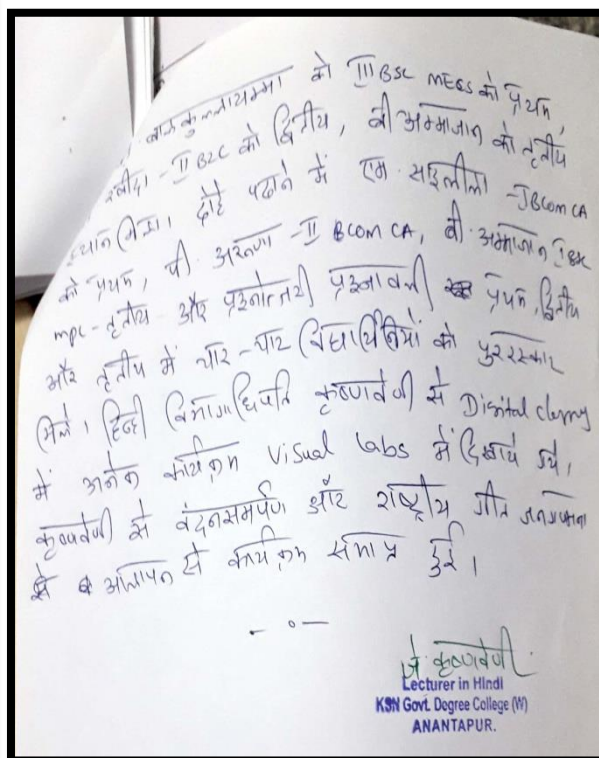 बालकुल्लायम्मा को III BSC MECS को प्रथम,
रवीदा - II BZC को द्वितीय, बी अम्माजान को तृतीय
स्थान मिला। दोहे पढाने में एम. साइलीला - I BCom CA
को प्रथम, पी. अरूणा - II BCOM CA, बी. अम्माजान I BSC
mpc - तृतीय और प्रश्नोत्तरी प्रश्नावली प्रथम, द्वितीय
और तृतीय में चार-चार विद्यार्थिनियों को पुररस्कार
मिले। हिन्दी विभागाधिपति कृष्णवेणी से Digital
में अनेक कार्यक्रम Visual labs में दिखाये गये,
कृष्णवेणी से वंदनसमर्पण और राष्ट्रीय गीत जनगणमन
से आलापन से कार्यक्रम समाप्त हुई।
- ० -
जे. कृष्णवेणी.
Lecturer in Hindi
KSN Govt. Degree College (W)
ANANTAPUR.